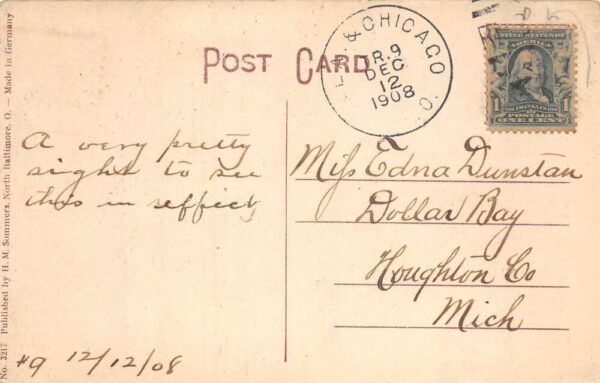 POST CARD
& CHICAGO
TR. 9
DEC
12
1908
O.
UNITED STATES OF
AMERICA
FRANKLIN
POSTAGE
1 ONE CENT 1
A very pretty
sight to see
this in effect
#9 12/12/08
Miss Edna Dunstan
Dollar Bay
Houghton Co
Mich
No. 3217 Published by H. M. Sommers, North Baltimore, O. — Made in Germany